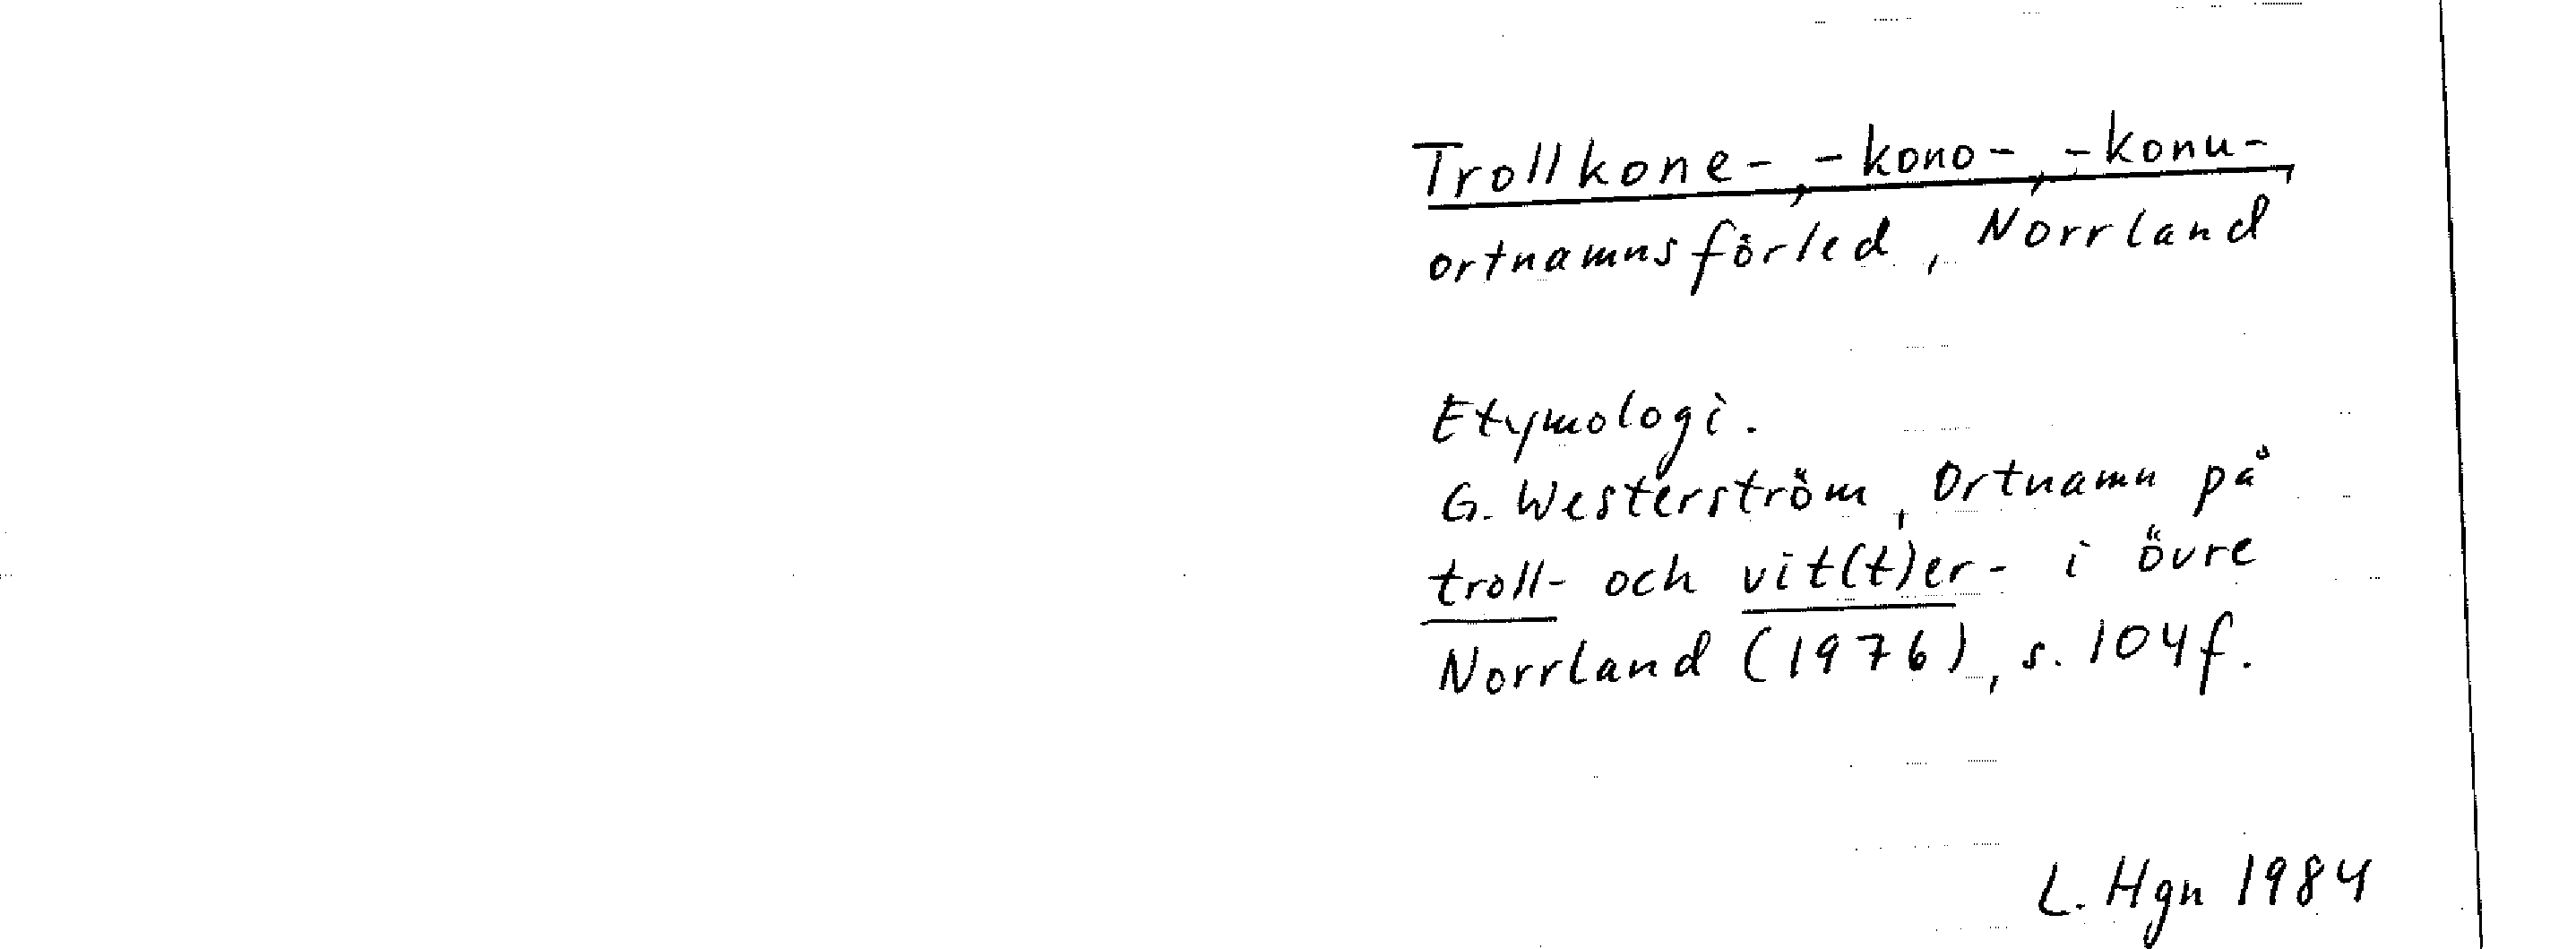 Trollkone-, -kono-, -konu-,
ortnamnsförled, Norrland
Etymologi.
G. Westerström, Ortnamn på
troll- och vit(t)er- i övre
Norrland (1976), s. 104f.
L. Hgn 1984